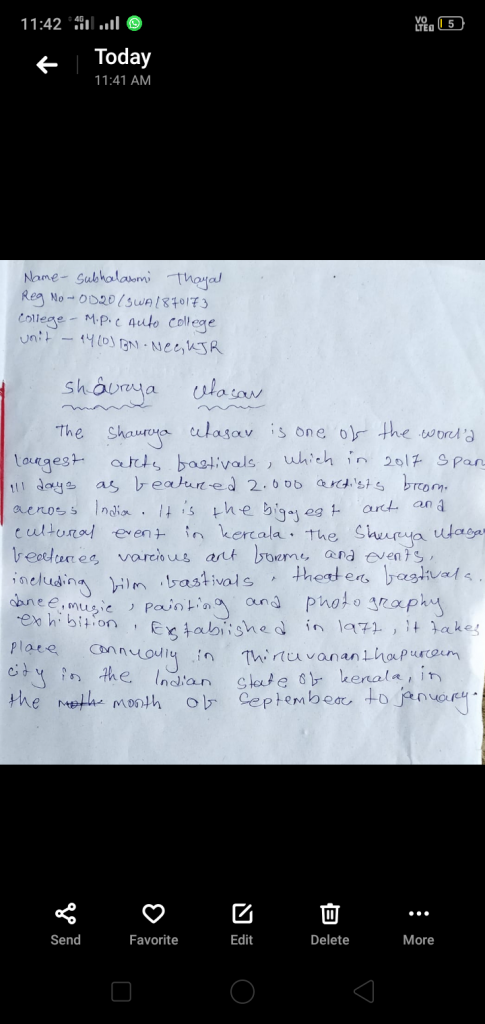 11:42 4G
VO LTE 5
Today
11:41 AM
Name - Subhalaxmi Thayal
Reg No - OD20/SWA/870173
College - M.P.C Auto College
Unit - 14(O) BN. NCC, KJR
Shaurya Utasav
The Shaurya Utasav is one of the world's
largest arts fastivals, which in 2017 Span
111 days as featured 2.000 artists from.
across India. It is the biggest art and
cultural event in kercala. The Shurya Utasav
feetures various art forms and events,
including film. fastivals, theaters fastivals.
dance, music, painting and photography
exhibition. Established in 1977, it takes
place annually in Thiruvananthapuram
city in the Indian state of kerala, in
the month of September to january.
Send Favorite Edit Delete More